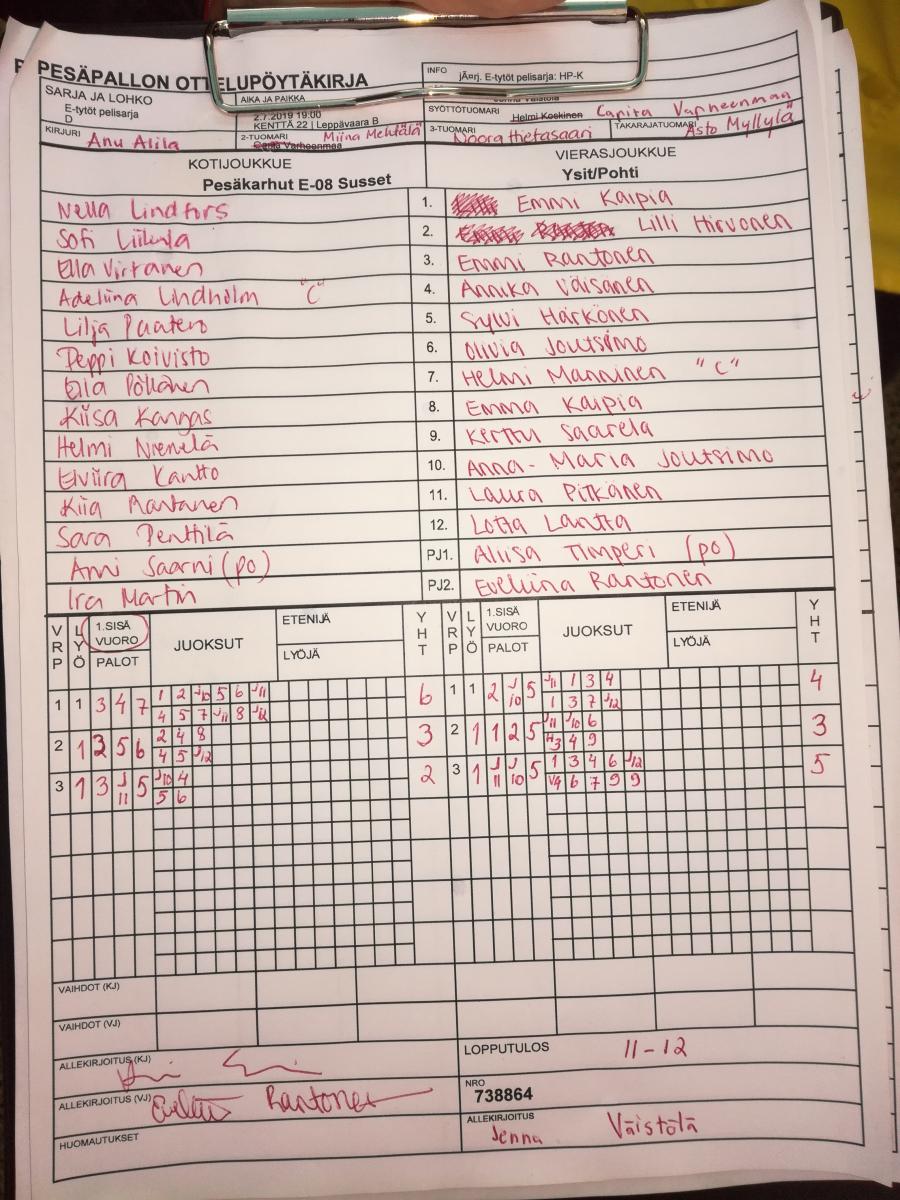 PESÄPALLON OTTELUPÖYTÄKIRJA
INFO jÃ¤rj. E-tytöt pelisarja: HP-K
SARJA JA LOHKO
E-tytöt pelisarja
D
AIKA JA PAIKKA
2.7.2019 19:00
KENTTÄ 22 | Leppävaara B
SYÖTTÖTUOMARI Helmi Koskinen Carita Varheenmaa
KIRJURI Anu Alila
2-TUOMARI Miina Melutälä
Carita Varheenmaa
3-TUOMARI Noora Hietasaari
TAKARAJATUOMARI Asto Myllylä
KOTIJOUKKUE
Pesäkarhut E-08 Susset
VIERASJOUKKUE
Ysit/Pohti
Nella Lindfors 1. Emmi Kaipia
Sofi Liikala 2. Lilli Hirvonen
Ella Virtanen 3. Emmi Rantonen
Adeliina Lindholm "C" 4. Annika Väisänen
Lilja Paatero 5. Sylvi Härkönen
Peppi Koivisto 6. Olivia Joutsimo
Ella Pöllänen 7. Helmi Manninen "C"
Kiisa Kangas 8. Emma Kaipia
Helmi Niemelä 9. Kerttu Saarela
Elviira Kantto 10. Anna-Maria Joutsimo
Kiia Rantanen 11. Laura Pitkänen
Sara Penttilä 12. Lotta Lantta
Ami Saarni (po) PJ1. Aliisa Timperi (po)
Ira Martin PJ2. Eveliina Rantonen
VRP LYÖ 1.SISÄ VUORO PALOT JUOKSUT ETENIJÄ LYÖJÄ YHT VRP LYÖ 1.SISÄ VUORO PALOT JUOKSUT ETENIJÄ LYÖJÄ YHT
1 1 3 4 7 1 2 J10 5 6 J11 6 1 1 2 J10 5 J11 1 3 4 4
4 5 7 J11 8 J12 1 3 7 J12
2 1 3 5 6 2 4 8 3 2 1 1 2 5 J11 J10 6 3
4 5 J12 H3 4 9
3 1 3 J11 5 J10 4 2 3 1 J11 J10 5 1 3 4 6 J12 5
5 6 V4 6 7 9 9
VAIHDOT (KJ)
VAIHDOT (VJ)
ALLEKIRJOITUS (KJ)
LOPPUTULOS 11-12
ALLEKIRJOITUS (VJ) Rantonen
NRO
738864
HUOMAUTUKSET
ALLEKIRJOITUS
Jenna Väistölä